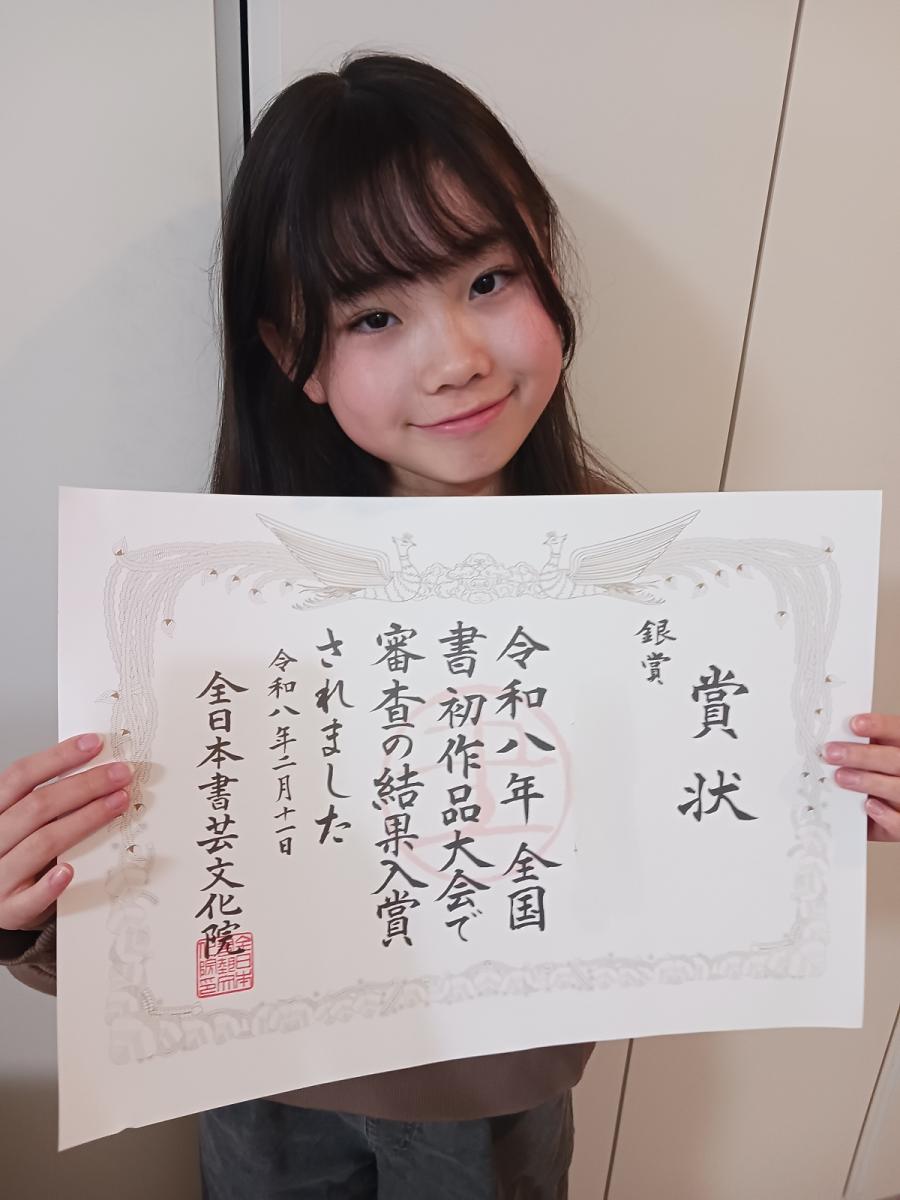 賞状
銀賞
令和八年 全国
書初作品大会で
審査の結果入賞
されました
令和八年二月十一日
全日本書芸文化院